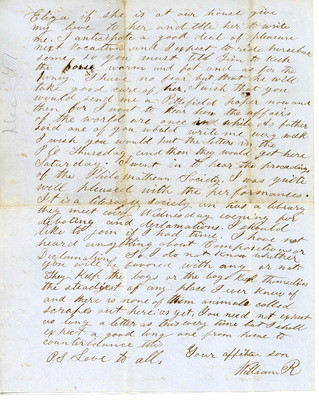 Eliza if she is at our house give
my love to her and tell her to write
me. I anticipate a good deal of pleasure
next vacation and I expect to ride horseback
some, you must tell Tim to keep
the horse warm and fat and as for the
poney I have no fear but that he will
take good care of her. I wish that you
would send me a Pittsfield paper now and
then for I want to hear how the affairs
of the world are going on while mother
said one of you would write me every week
I wish you would put the letters in the
P.O. Thursday and then they would get here
Saturday. I went in to hear the proceedings
of the Philomathean Society I was quite
well pleased with the performances.
It is a literary society, it has a library
they meet every Wednesday evening for
debating and declamations. I should
like to join if I had time. I have not
heard anything about Compositions or
Declamations so I do not know whether
you will be favored with any or not
They keep the boys or the boys keep themselves
the steadiest of any place I ever knew of
and there is none of them animals called
scrapes out here as yet, You need not expect
as long a letter as this every time but I shall
expect a good long one from home to
counterbalance this
Your affte son
PS Love to all
William R